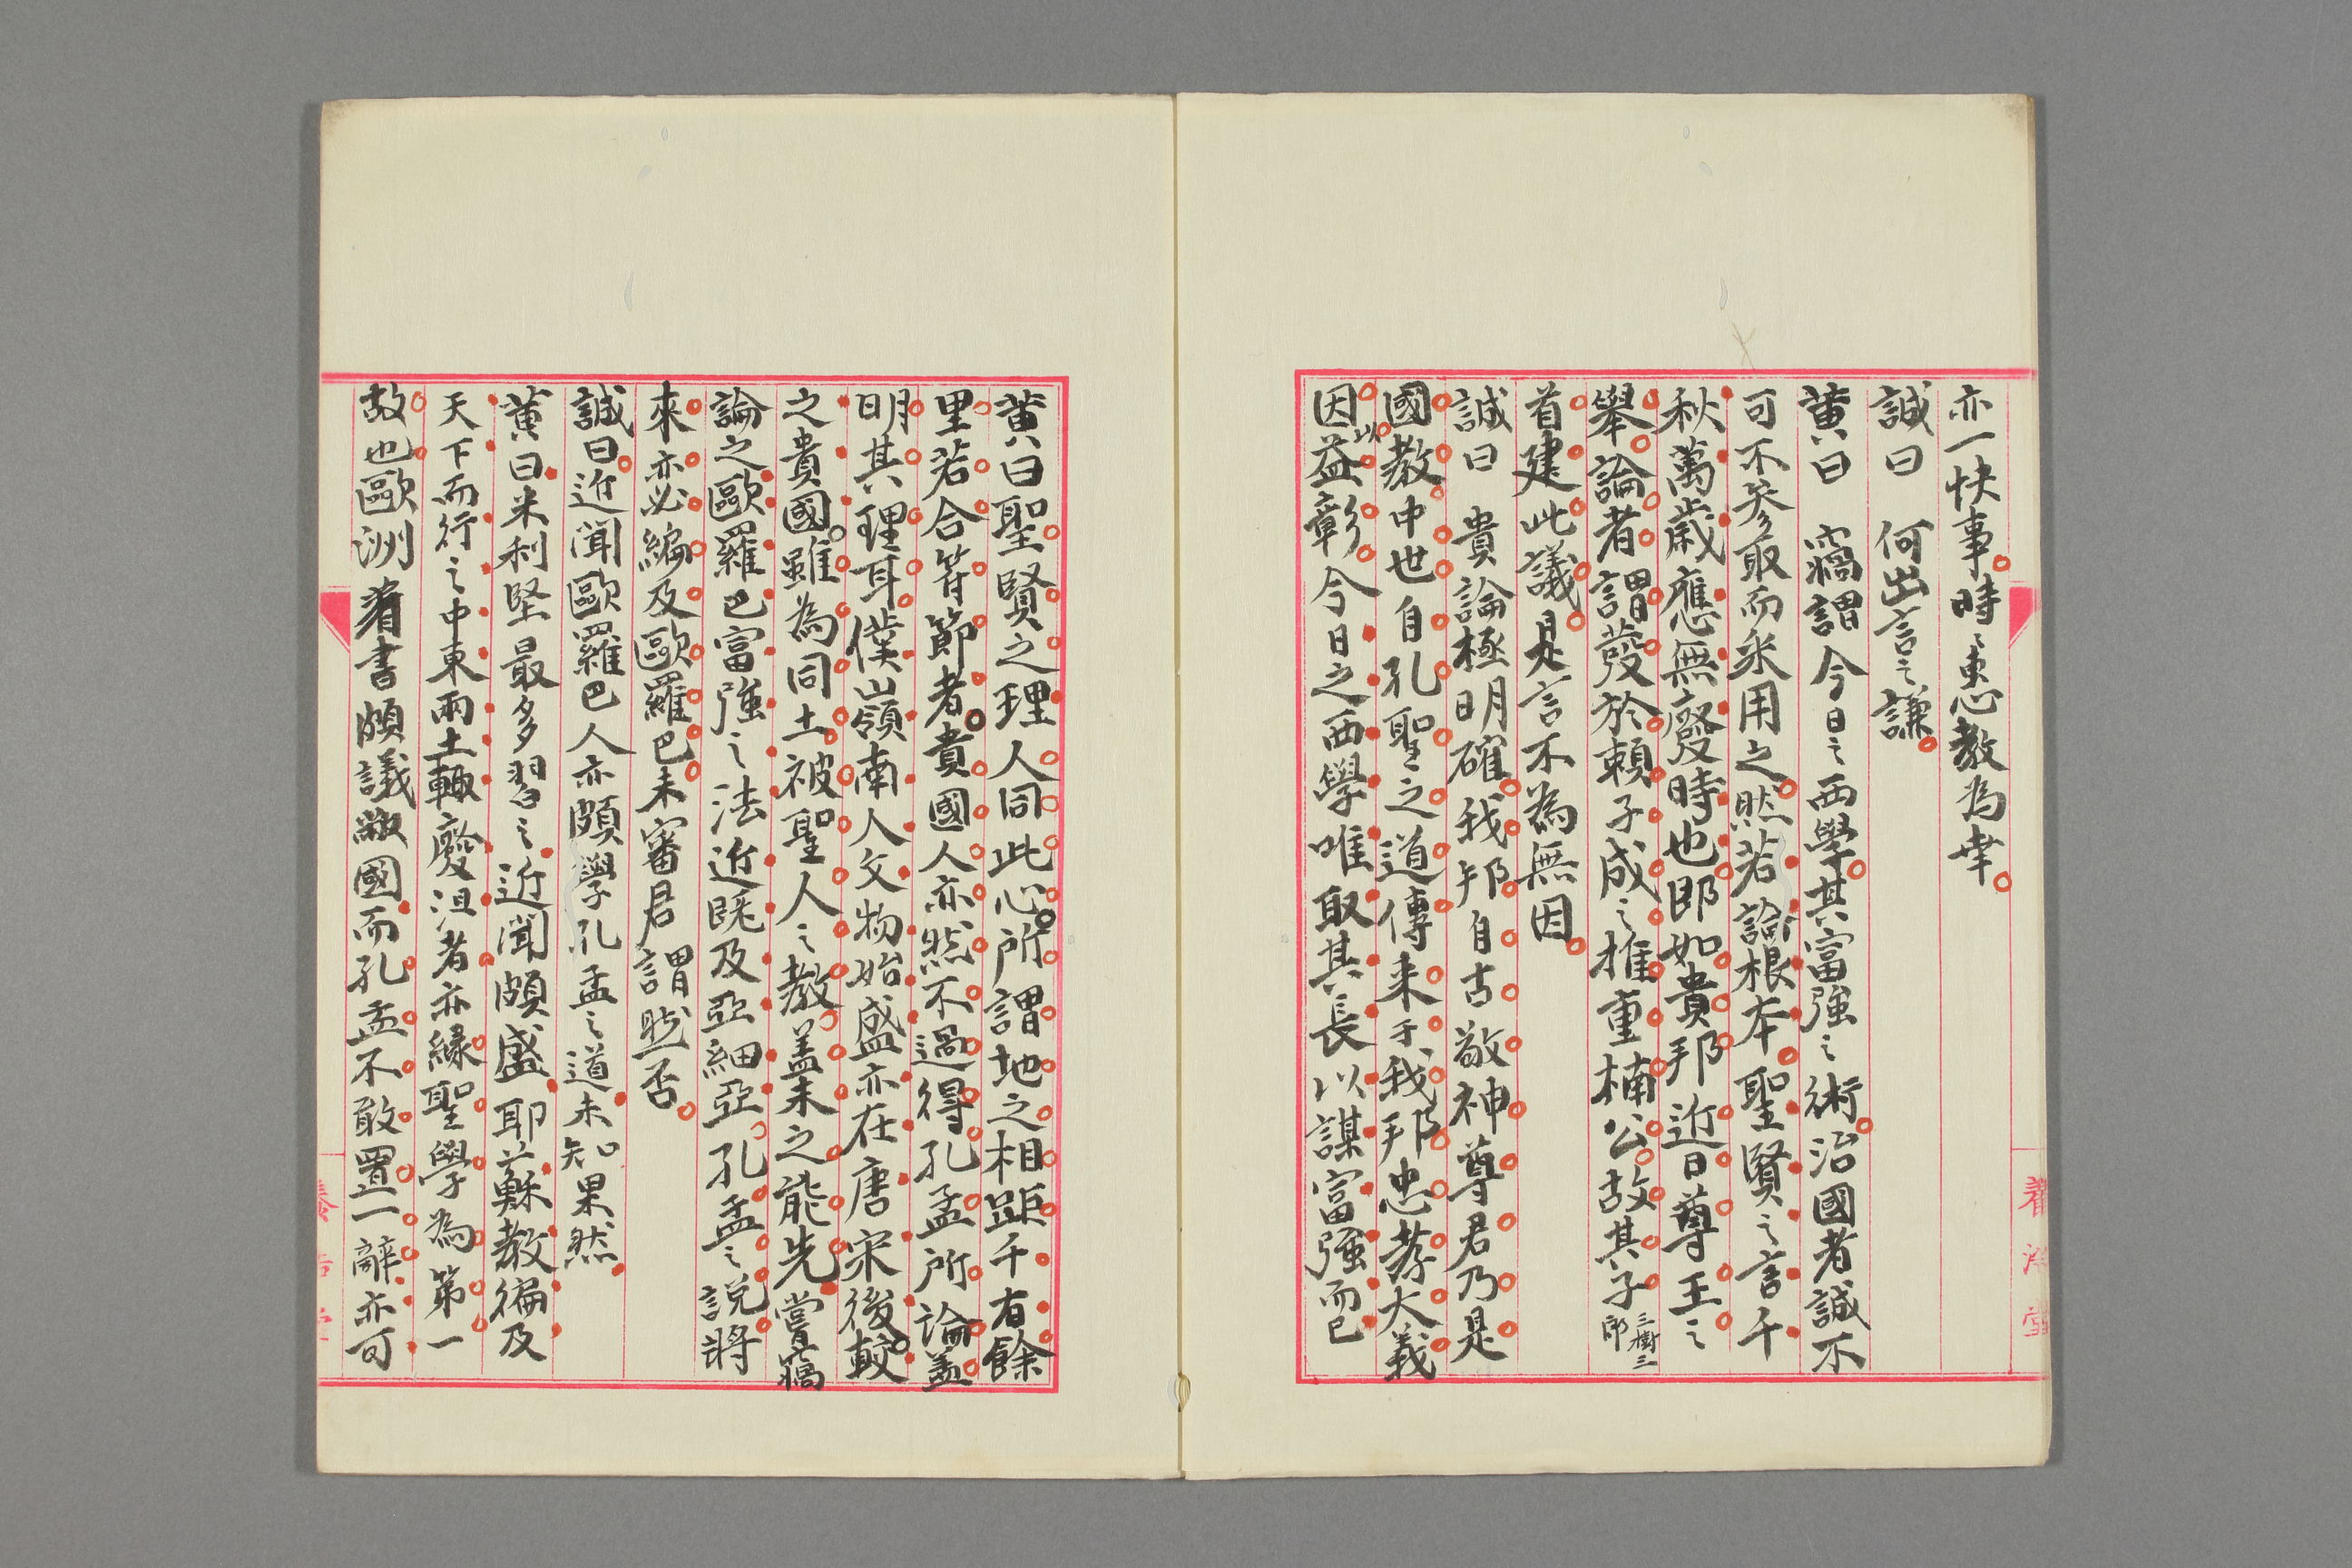 亦一快事時〻惠教為幸
誠曰　何出言之謙
黃曰　竊謂今日之西學其富強之術治國者誠不
可不參取而采用之然若論根本聖賢之言千
秋萬歲應無廢時也即如貴邦近日尊王之
舉論者謂發於賴子成之推重楠公故其子三樹三郎
首建此議是言不為無因
誠曰　貴論極明確我邦自古敬神尊君乃是
國教中世自孔聖之道傳來于我邦忠孝大義
因以益彰今日之西學唯取其長以謀富強而已
黃曰聖賢之理人同此心所謂地之相距千有餘
里若合符節者貴國人亦然不過得孔孟所論蓋
明其理耳僕嶺南人文物始盛亦在唐宋後較
之貴國雖為同土被聖人之教蓋未之能先嘗竊
論之歐羅巴富強之法近既及亞細亞孔孟之說將
來亦必編及歐羅巴未審君謂然否
誠曰近聞歐羅巴人亦頗學孔孟之道未知果然
黃曰米利堅最多習之近聞頗盛耶蘇教徧及
天下而行之中東兩土輙廢沮者亦緣聖學為第一
故也歐洲著書頗議敝國而孔孟不敢置一辭亦可